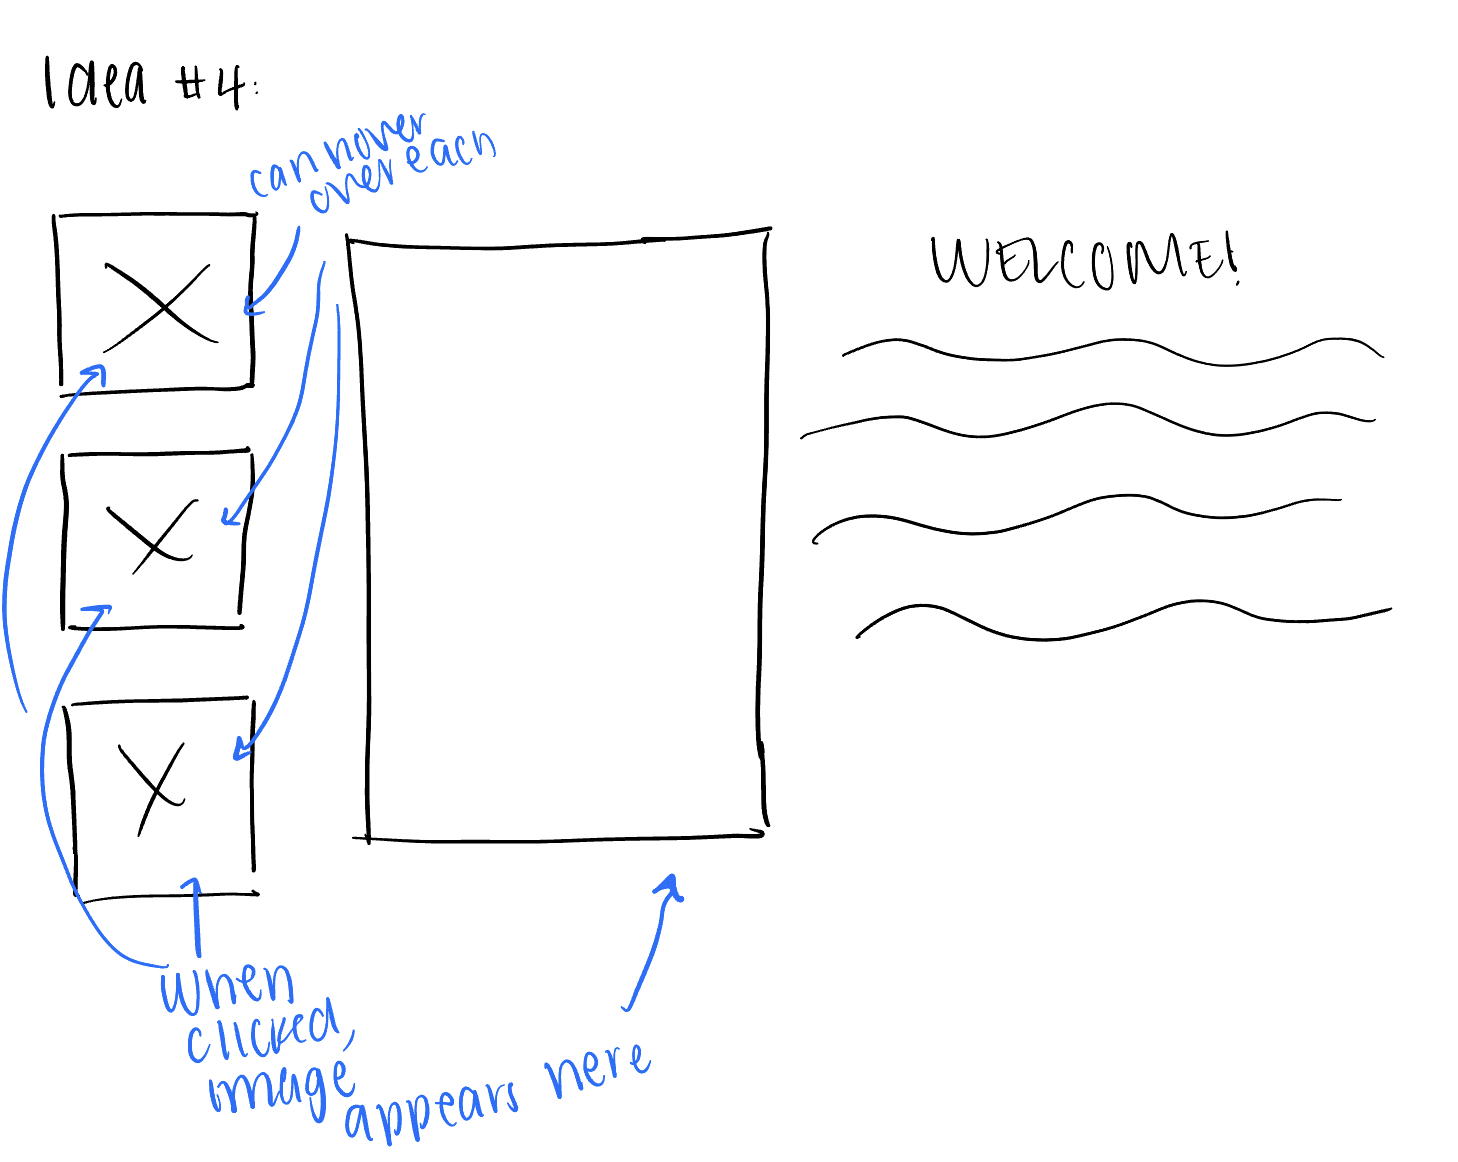 Idea #4:
can hover
over each
WELCOME!
when
clicked,
image
appears here